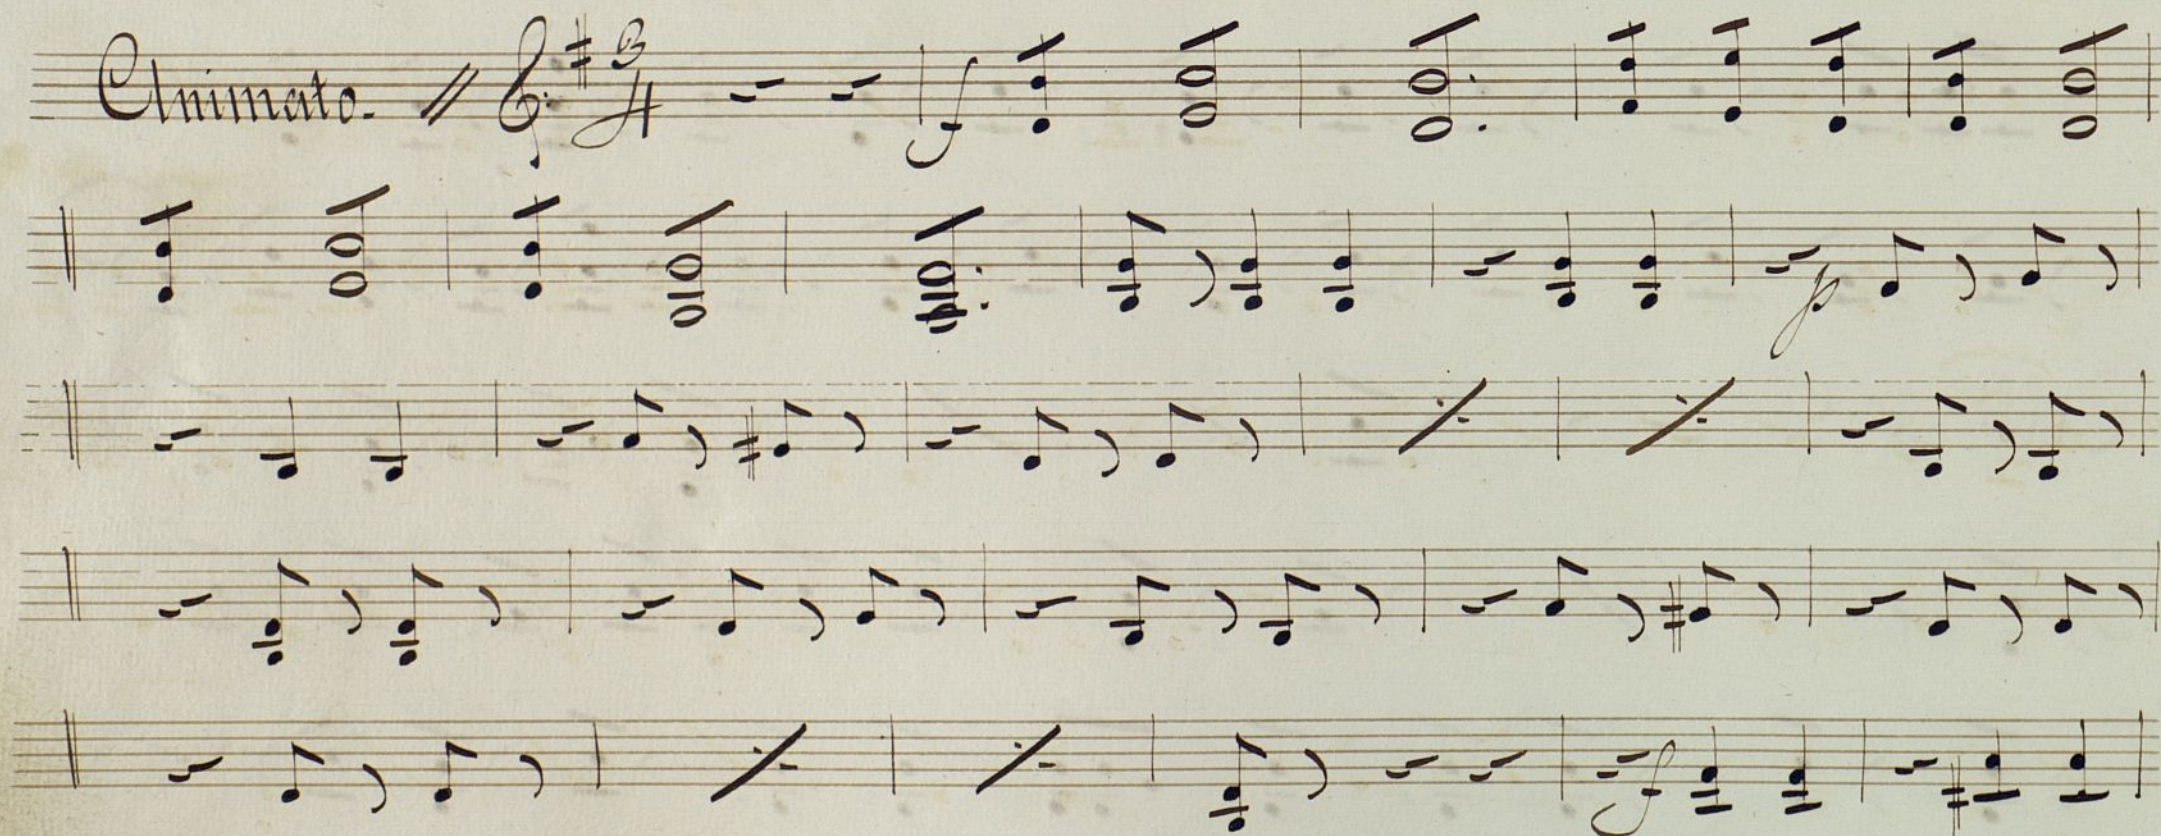 Animato. 3/4
f
p
f